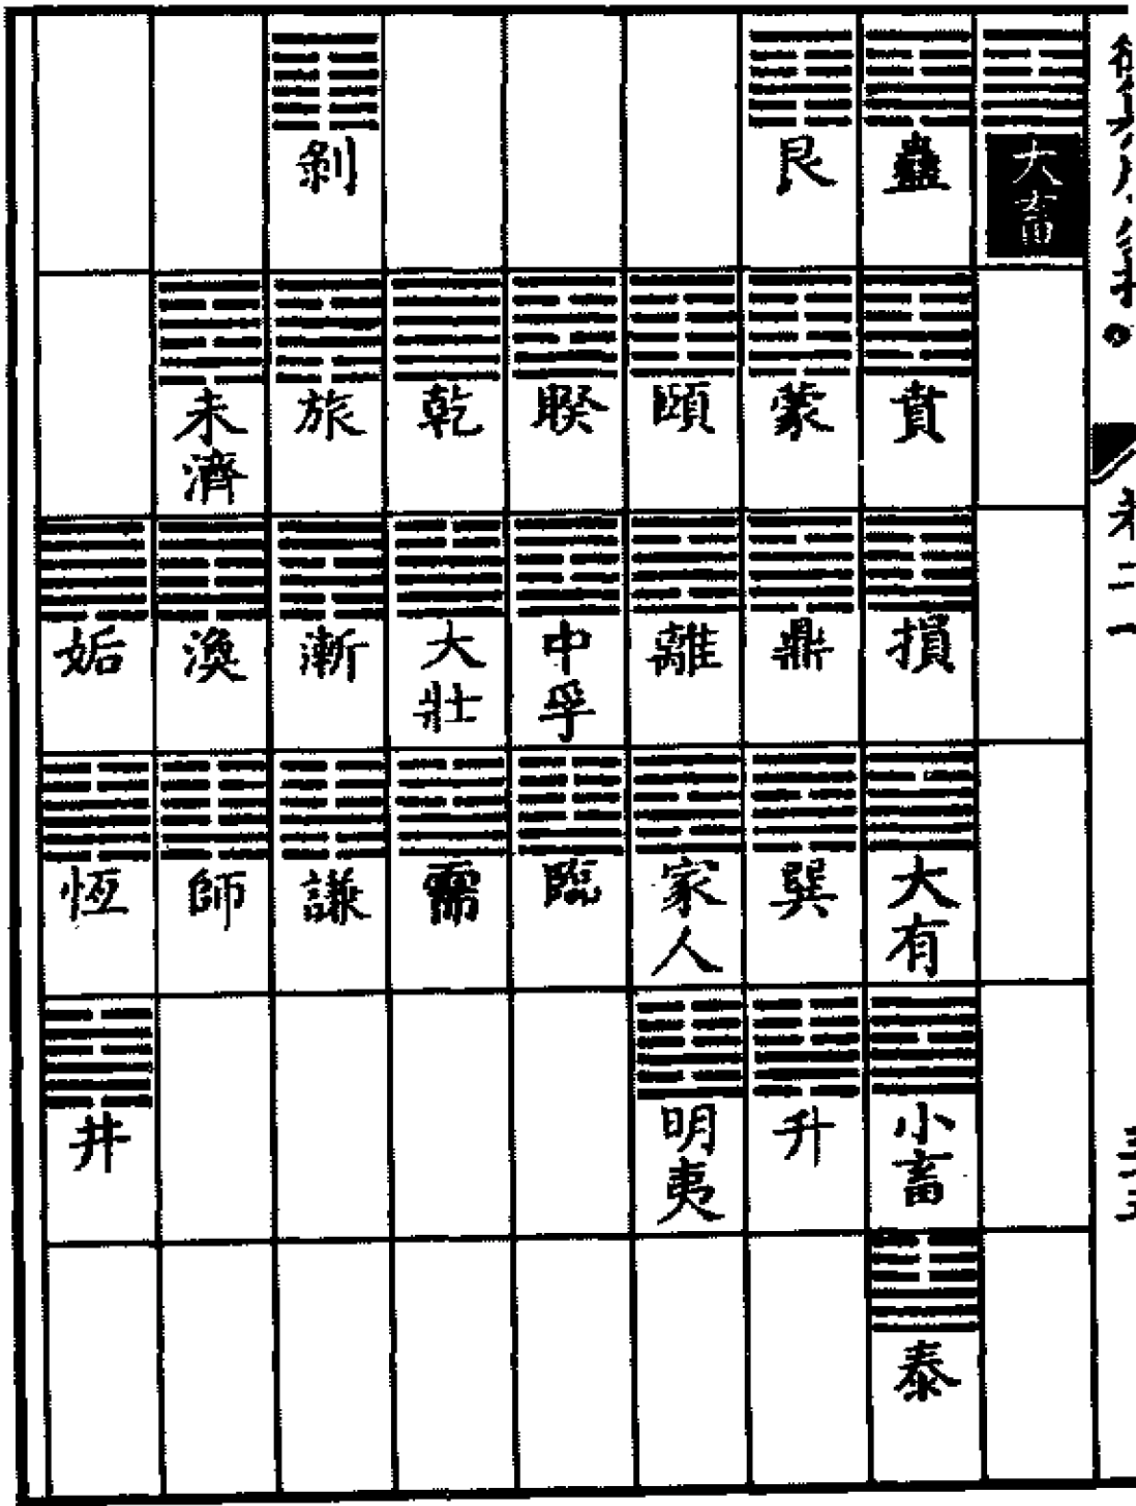 大畜
蠱
賁
損
大有
小畜
泰
艮
蒙
鼎
巽
升
頤
離
家人
明夷
睽
中孚
臨
乾
大壯
需
剝
旅
漸
謙
未濟
渙
師
姤
恆
井